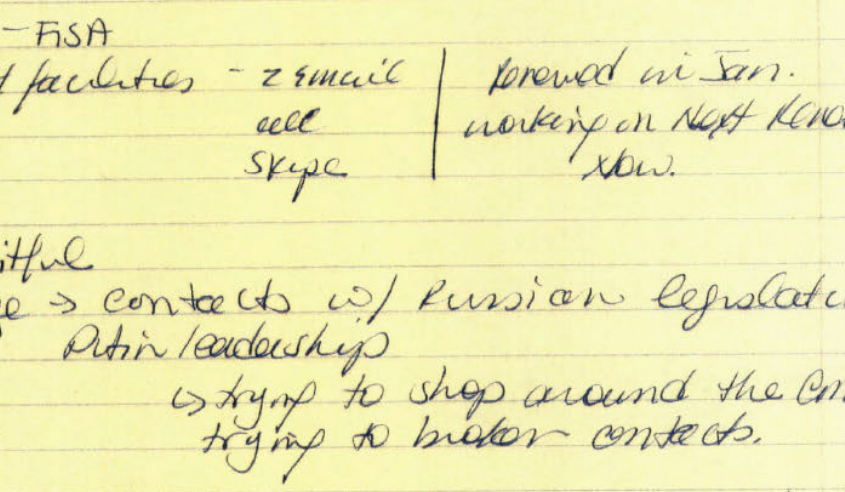 - FISA
facilities - 2 email | Renewed in Jan.
cell | working on Next
Skype | Now.
itful
ge → contacts w/ Russian legislatu
Putin leadership
↳ trying to shop around the
trying to broker contacts.